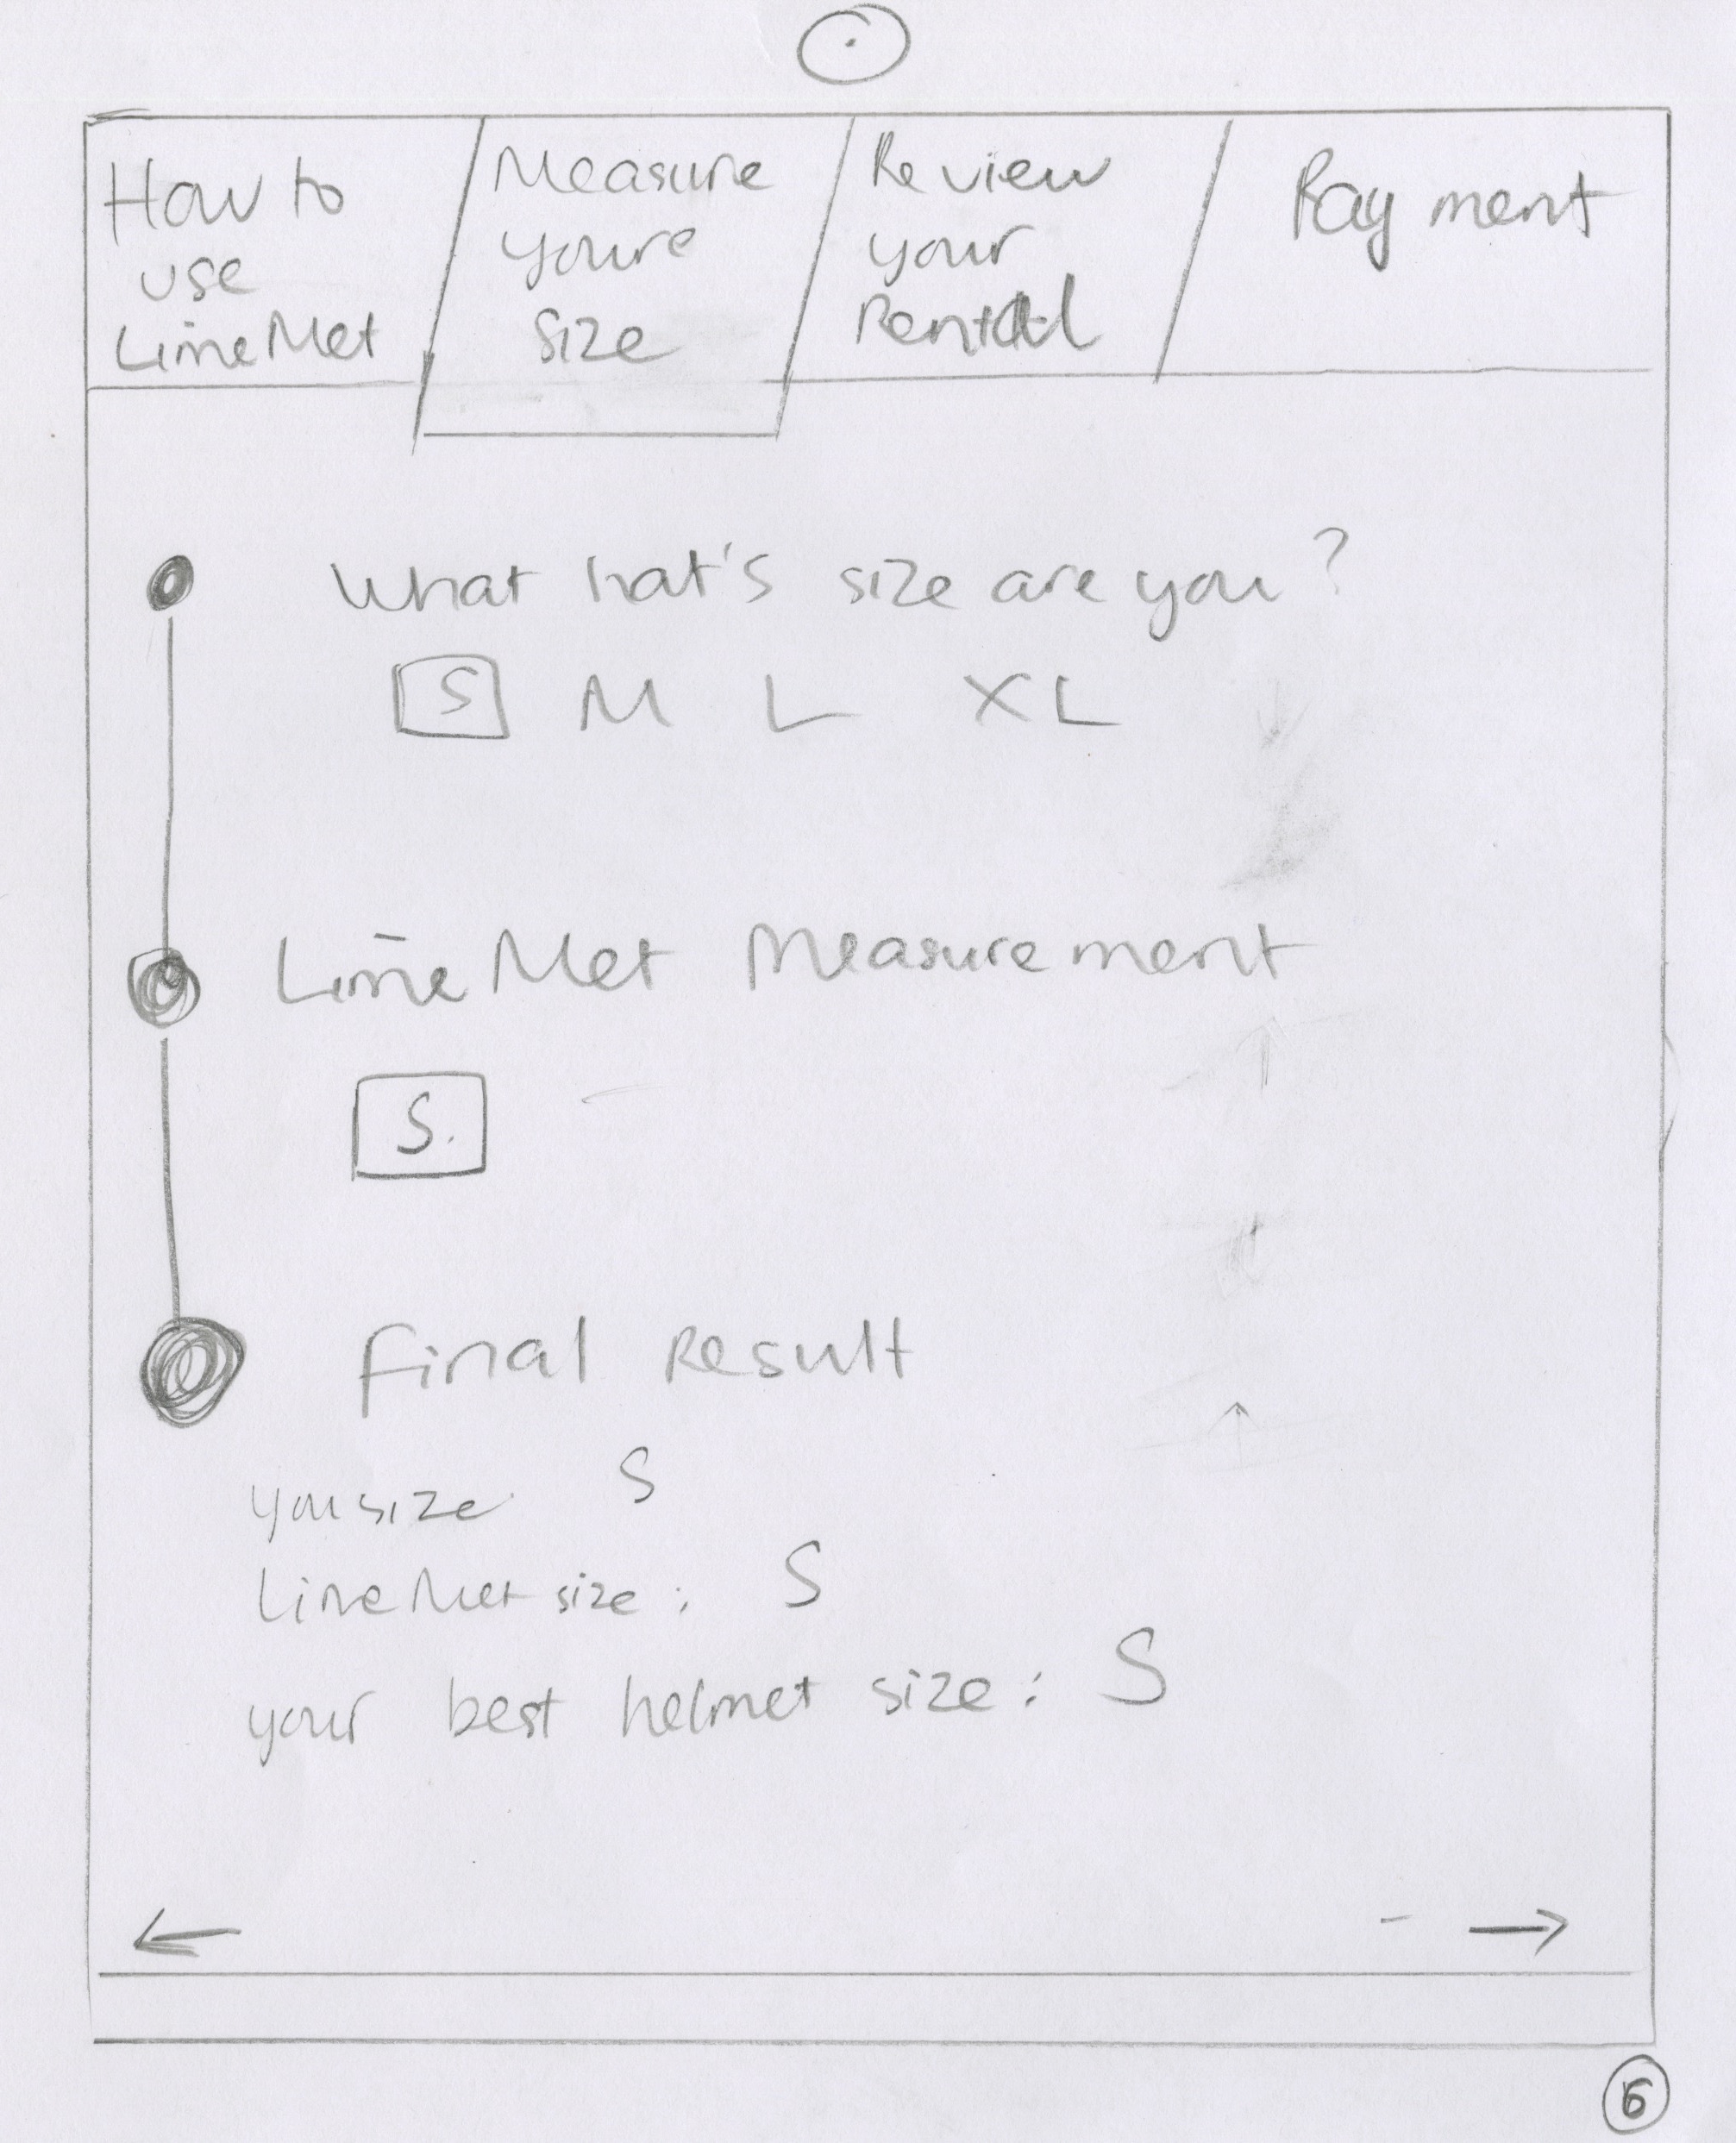 How to
use
LimeMet
Measure
youre
Size
Review
your
Rental
Payment
What hat's size are you?
S M L XL
LimeMet Measurement
S.
Final Result
you size S
LimeMet size: S
your best helmet size: S
6